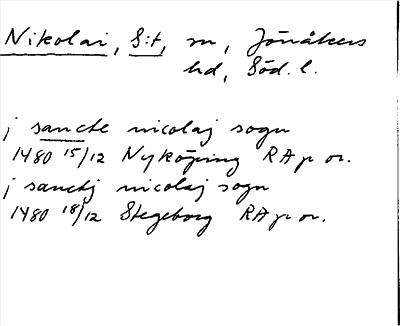 Nikolai, S:t, sn, Jönåkers
hd, Söd. l.
j sancte nicolaj sogn
1480 15/12 Nyköping RAp or.
j sanctj nicolaj sogn
1480 18/12 Stegeborg RAp or.